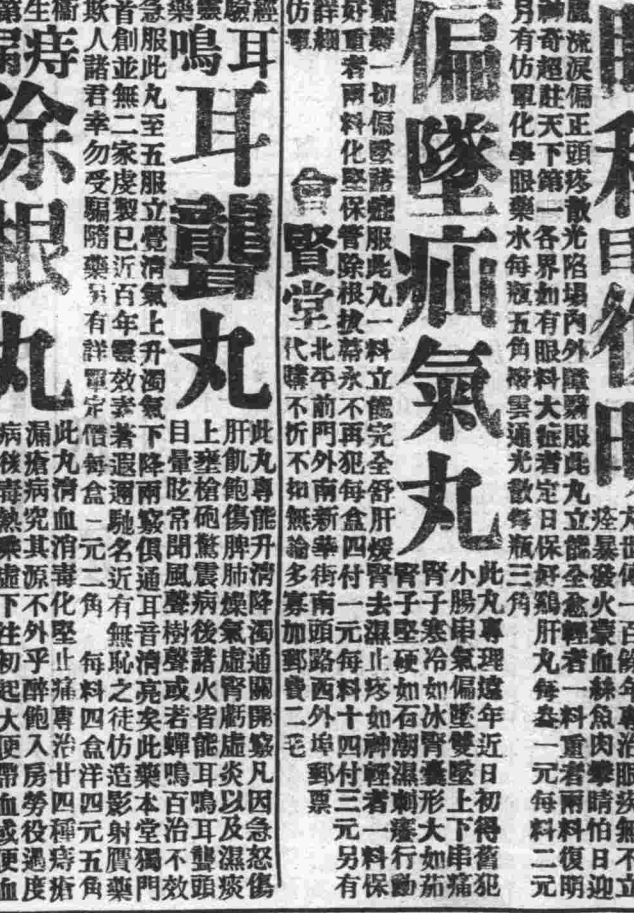 世傳一百餘年專治眼疾無不立
痊暴發火蒙血絲魚肉攀睛怕日迎
風流淚偏正頭疼散光陷塌內外障翳服此丸立能全愈輕者一料重者兩料復明
神奇超駐天下第一各界如有眼科大症者定日保好鷄肝丸每盒一元每料二元
另有仿單化學眼藥水每瓶五角撥雲通光散每瓶三角
偏墜疝氣丸
此丸專理遠年近日初得舊犯
小腸串氣偏墜雙墜上下串痛
腎子寒冷如冰腎囊形大如茄
腎子堅硬如石潮濕刺癢行動
艱難一切偏墜諸症服此丸一料立能完全舒肝煖腎去濕止疼如神輕者一料保
好重者兩料化堅保管除根拔蒂永不再犯每盒四付一元每料十四付三元另有
詳細
仿單
會賢堂
北平前門外南新華街南頭路西外埠郵票
代購不折不扣無論多寡加郵費二毛
經驗靈藥
耳鳴耳聾丸
此丸專能升清降濁通關開竅凡因急怒傷
肝飢飽傷脾肺燥氣虛腎虧虛炎以及濕痰
上壅槍砲驚震病後諸火皆能耳鳴耳聾頭
目暈眩常聞風聲樹聲或若蟬鳴百治不效
急服此丸至五服立覺清氣上升濁氣下降兩竅俱通耳音清亮矣此藥本堂獨門
首創並無二家虔製已近百年靈效素著遐邇馳名近有無恥之徒仿造影射贋藥
欺人諸君幸勿受騙隨藥另有詳單定價每盒一元二角 每料四盒洋四元五角
衛生第
痔漏除根丸
此丸清血消毒化堅止痛專治廿四種痔瘡
漏瘡病究其源不外乎醉飽入房勞役過度
病後毒熱乘虛下注初起大便帶血或便血